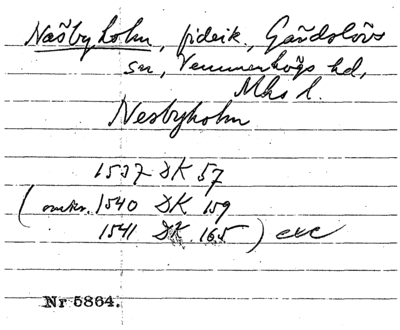 Näsbyholm, fideik., Gärdslövs
sn, Vemmenhögs hd,
Mhs l.
Nesbyholm
1537 DK 57
(omkr. 1540 DK 159
1541 DK 165) exc
Nr 5864.